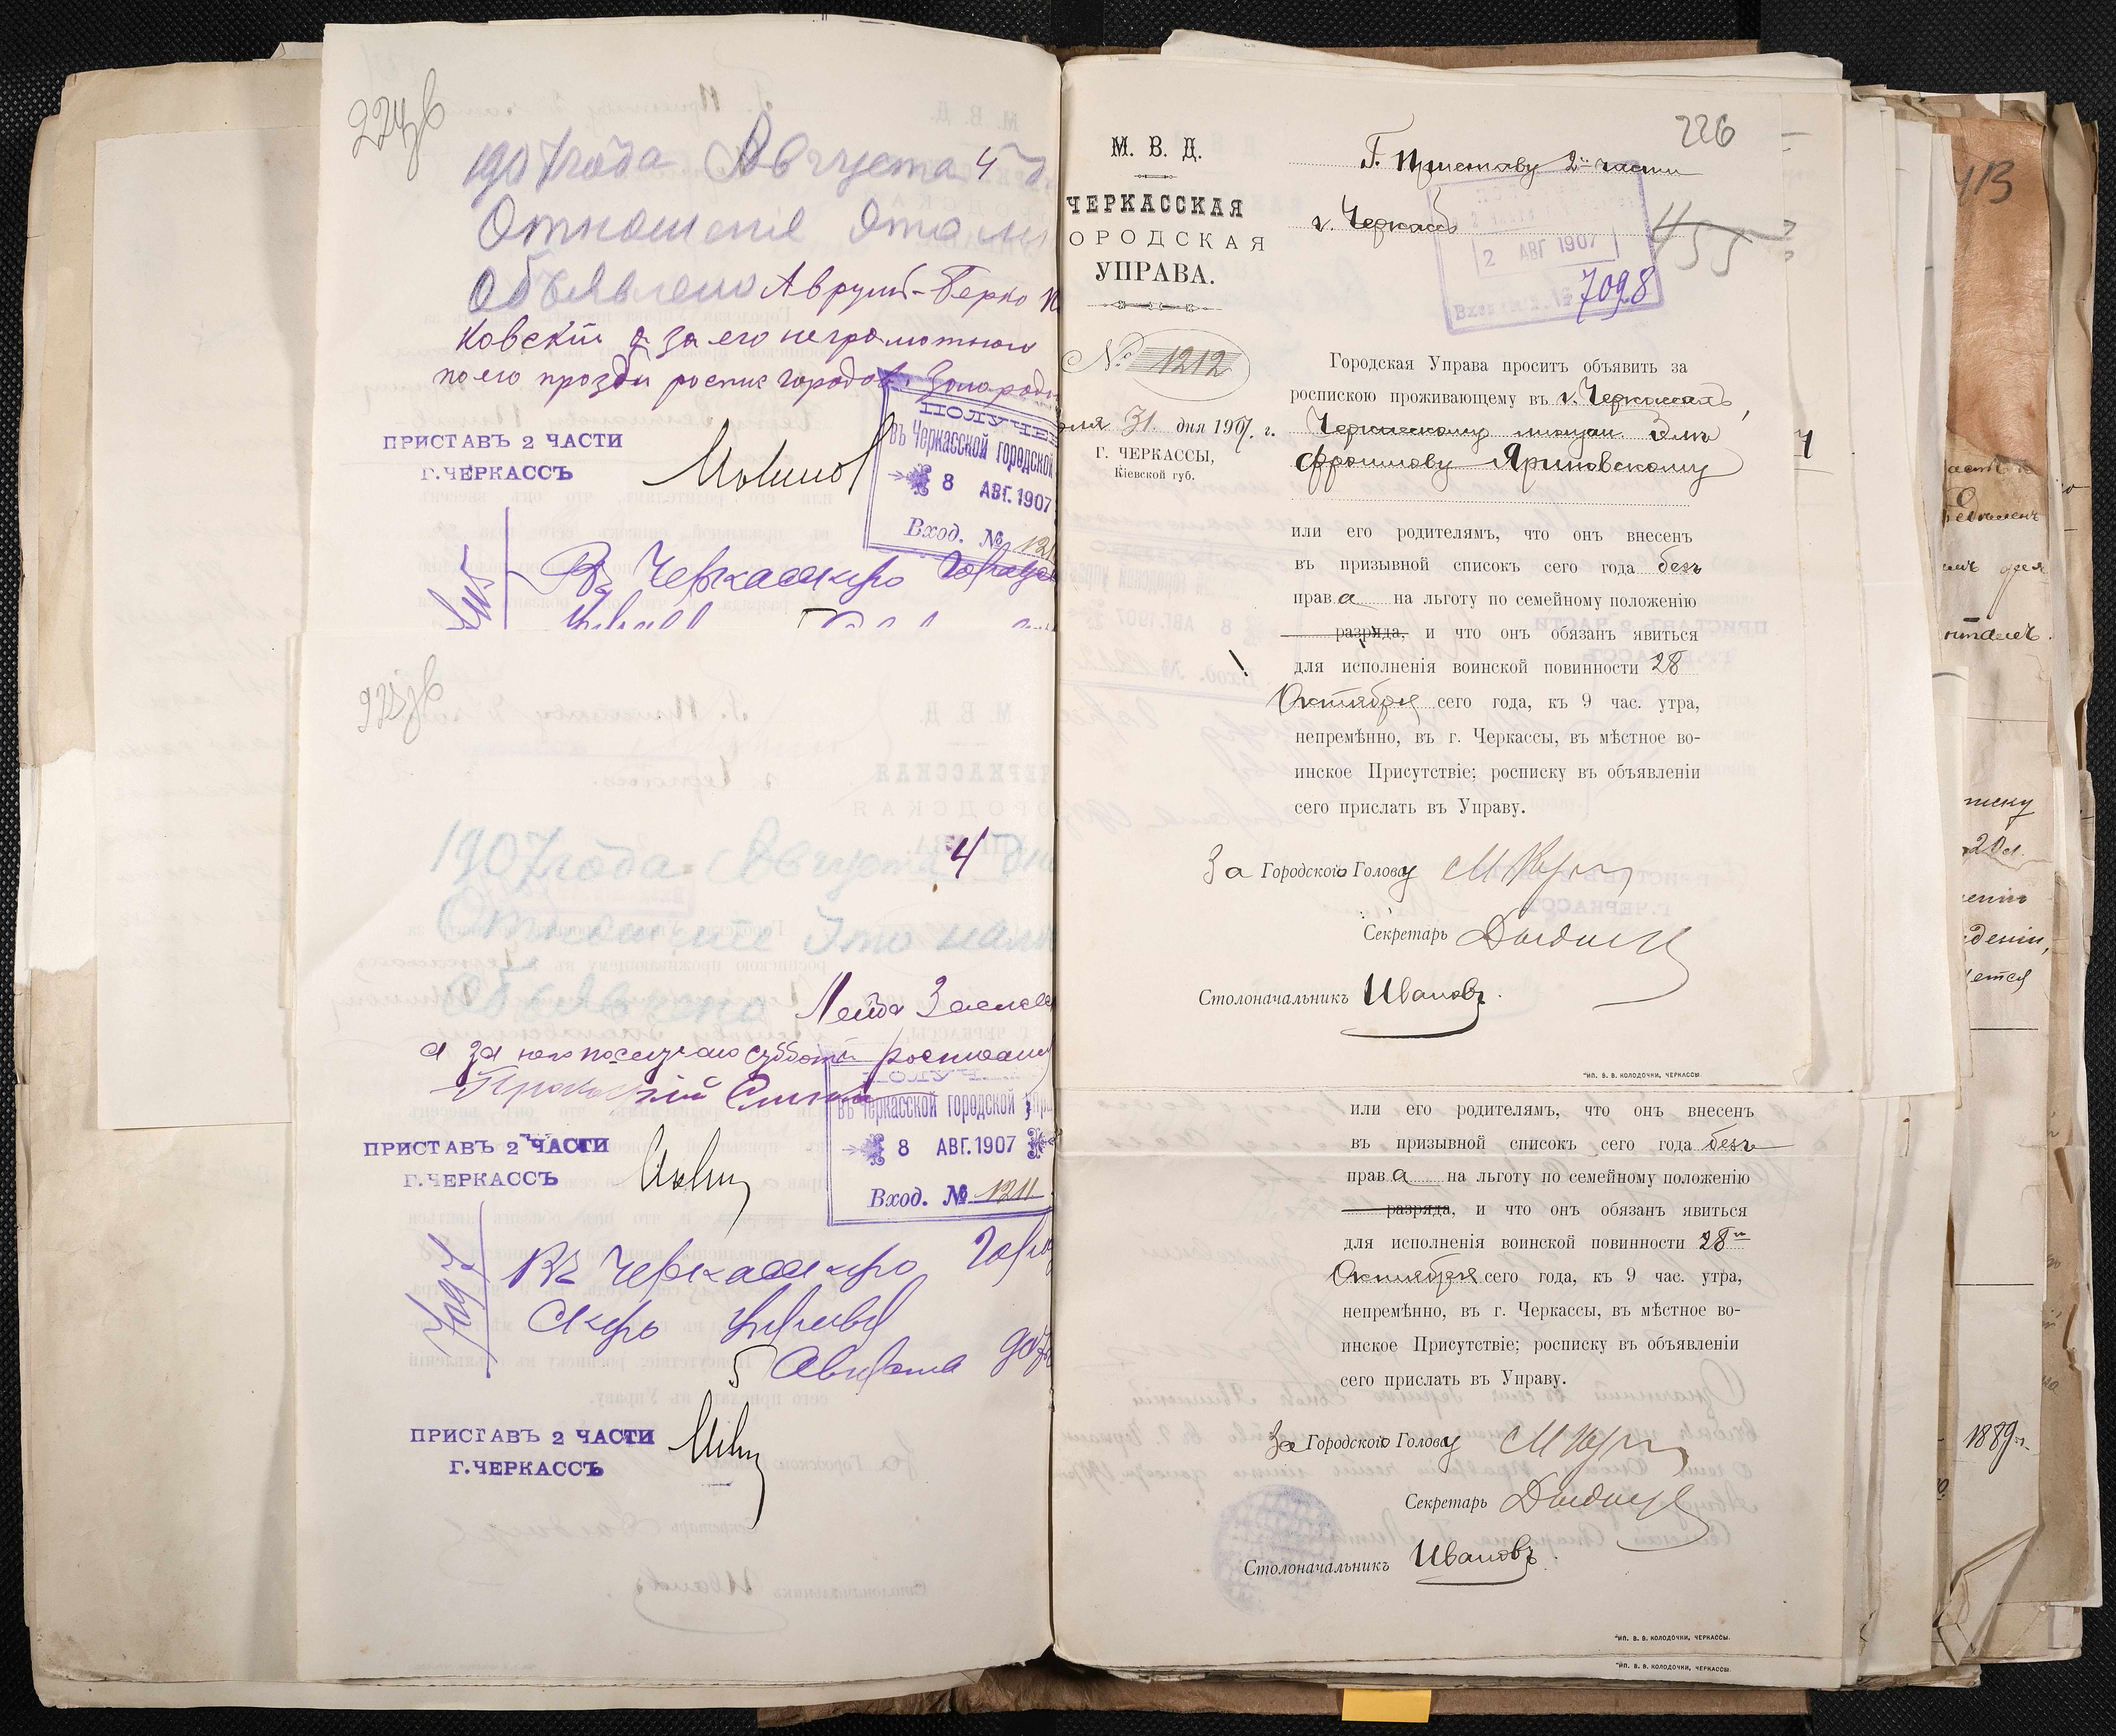 224об
1907 года Августа 4 д
Отношение это мн
Объявлено Аврумъ-Берко
ковскій а за его неграмотного
по его прозби роспис городов.
ПРИСТАВЪ 2 ЧАСТИ
Г. ЧЕРКАССЪ
ПОЛУЧЕН
въ Черкасской городской
8 АВГ. 1907
Вход. № 121
Въ Черкасскую Городс
225об
1907 года Августа 4 дня
Отношение это мною
Объявлено Лейба
а за него по случаю субботы росписался
ПОЛУЧ
въ Черкасской городской упра
8 АВГ. 1907
Вход. № 1211
ПРИСТАВЪ 2 ЧАСТИ
Г. ЧЕРКАССЪ
7097
Въ Черкасскую Горо
скую Управу
5 Августа 907
ПРИСТАВЪ 2 ЧАСТИ
Г. ЧЕРКАССЪ
226
М. В. Д.
ЧЕРКАССКАЯ
ОРОДСКАЯ
УПРАВА.
№ 1212
юля 31 дня 1907 г.
Г. ЧЕРКАССЫ,
Кіевской губ.
Г. Приставу 2й части
г. Черкассъ
455
2 АВГ 1907
7098
Городская Управа проситъ объявить за
роспискою проживающему въ г. Черкассахъ,
Черкасскому мещан.
Фроимову Яриновскому
или его родителямъ, что онъ внесенъ
въ призывной списокъ сего года безъ
права на льготу по семейному положенію
разряда, и что онъ обязанъ явиться
для исполненія воинской повинности 28
Октября сего года, къ 9 час. утра,
непремѣнно, въ г. Черкассы, въ мѣстное во-
инское Присутствіе; росписку въ объявленіи
сего прислать въ Управу.
За Городского Голову
Секретарь
Столоначальникъ Ивановъ.
ТИП. В. В. КОЛОДОЧКИ, ЧЕРКАССЫ.
или его родителямъ, что онъ внесенъ
въ призывной списокъ сего года безъ
права на льготу по семейному положенію
разряда, и что онъ обязанъ явиться
для исполненія воинской повинности 28го
Октября сего года, къ 9 час. утра,
непремѣнно, въ г. Черкассы, въ мѣстное во-
инское Присутствіе; росписку въ объявленіи
сего прислать въ Управу.
За Городского Голову
Секретарь
Столоначальникъ Ивановъ.
ТИП. В. В. КОЛОДОЧКИ, ЧЕРКАССЫ.
ТИП. В. В. КОЛОДОЧКИ, ЧЕРКАССЫ.
1889 г.